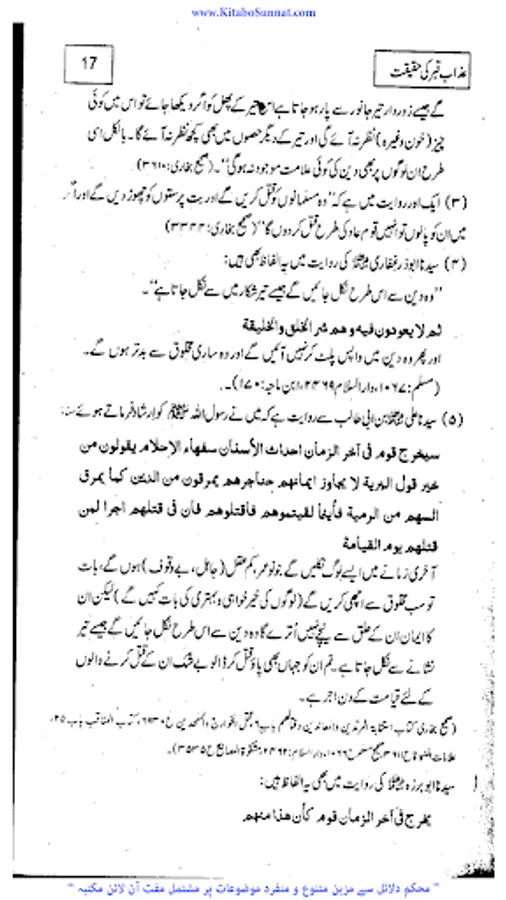 www.KitaboSunnat.com
عذاب قبر کی حقیقت
17
گے جیسے زوردار تیر جانور سے پار ہو جاتا ہے اس تیر کے پھل کو اگر دیکھا جائے تو اس میں کوئی
چیز (خون وغیرہ) نظر نہ آئے گی اور تیر کے دیگر حصوں میں بھی کچھ نظر نہ آئے گا۔ بالکل اسی
طرح ان لوگوں پر بھی دین کی کوئی علامت موجود نہ ہوگی"۔ (صحیح بخاری: ۳۶۱۰)
(۳) ایک اور روایت میں ہے کہ "وہ مسلمانوں کو قتل کریں گے اور بت پرستوں کو چھوڑ دیں گے اور اگر
میں ان کو پالوں تو انہیں قوم عاد کی طرح قتل کر دوں گا" (صحیح بخاری: ۳۳۴۴)
(۴) سیدنا ابوذر غفاری ﷜ کی روایت میں یہ الفاظ بھی ہیں:
"وہ دین سے اس طرح نکل جائیں گے جیسے تیر شکار میں سے نکل جاتا ہے"۔
ثم لا يعودون فيه وهم شر الخلق والخليقة
اور پھر وہ دین میں واپس پلٹ کر نہیں آئیں گے اور وہ ساری مخلوق سے بدتر ہوں گے۔
(مسلم: ۱۰۶۷، دارالسلام ۲۴۶۹، ابن ماجہ: ۱۷۰)۔
(۵) سیدنا علی ﷜ بن ابی طالب سے روایت ہے کہ میں نے رسول اللہ ﷺ کو ارشاد فرماتے ہوئے سنا:
سيخرج قوم فى آخر الزمان احداث الأسنان سفهاء الاحلام يقولون من
خير قول البرية لا يجاوز ايمانهم حناجرهم يمرقون من الدين كما يمرق
السهم من الرمية فأينما لقيتموهم فاقتلوهم فان فى قتلهم اجرا لمن
قتلهم يوم القيامة
آخری زمانے میں ایسے لوگ نکلیں گے جو نوعمر، کم عقل (جاہل، بے وقوف) ہوں گے، بات
تو سب مخلوق سے اچھی کریں گے (لوگوں کی خیر خواہی و بہتری کی بات کہیں گے) لیکن ان
کا ایمان ان کے حلق سے نیچے نہیں اُترے گا وہ دین سے اس طرح نکل جائیں گے جیسے تیر
نشانے سے نکل جاتا ہے۔ تم ان کو جہاں بھی پاؤ قتل کر ڈالو بے شک ان کے قتل کرنے والوں
کے لئے قیامت کے دن اجر ہے۔
(صحیح بخاری کتاب استتابۃ المرتدین والمعاندین وقتالھم باب ۶ قتل الخوارج والملحدین ح ۶۹۳۰، کتاب المناقب باب ۲۵،
علامات النبوۃ ح ۳۶۱۱ صحیح مسلم ح ۱۰۶۶، دارالسلام: ۲۴۶۲، مشکوۃ المصابیح ح ۳۵۳۵)
سیدنا ابوبرزہ ﷜ کی روایت میں بھی یہ الفاظ ہیں:
يخرج فى آخر الزمان قوم كأن هذا منهم
" محکم دلائل سے مزین متنوع و منفرد موضوعات پر مشتمل مفت آن لائن مکتبہ "